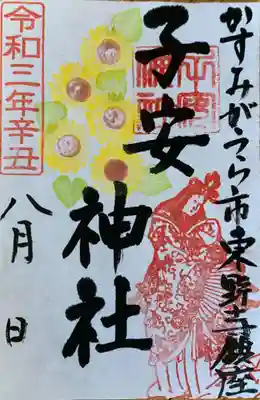 かすみがうら市東野寺鎮座
子安神社
令和三年辛丑
八月　日